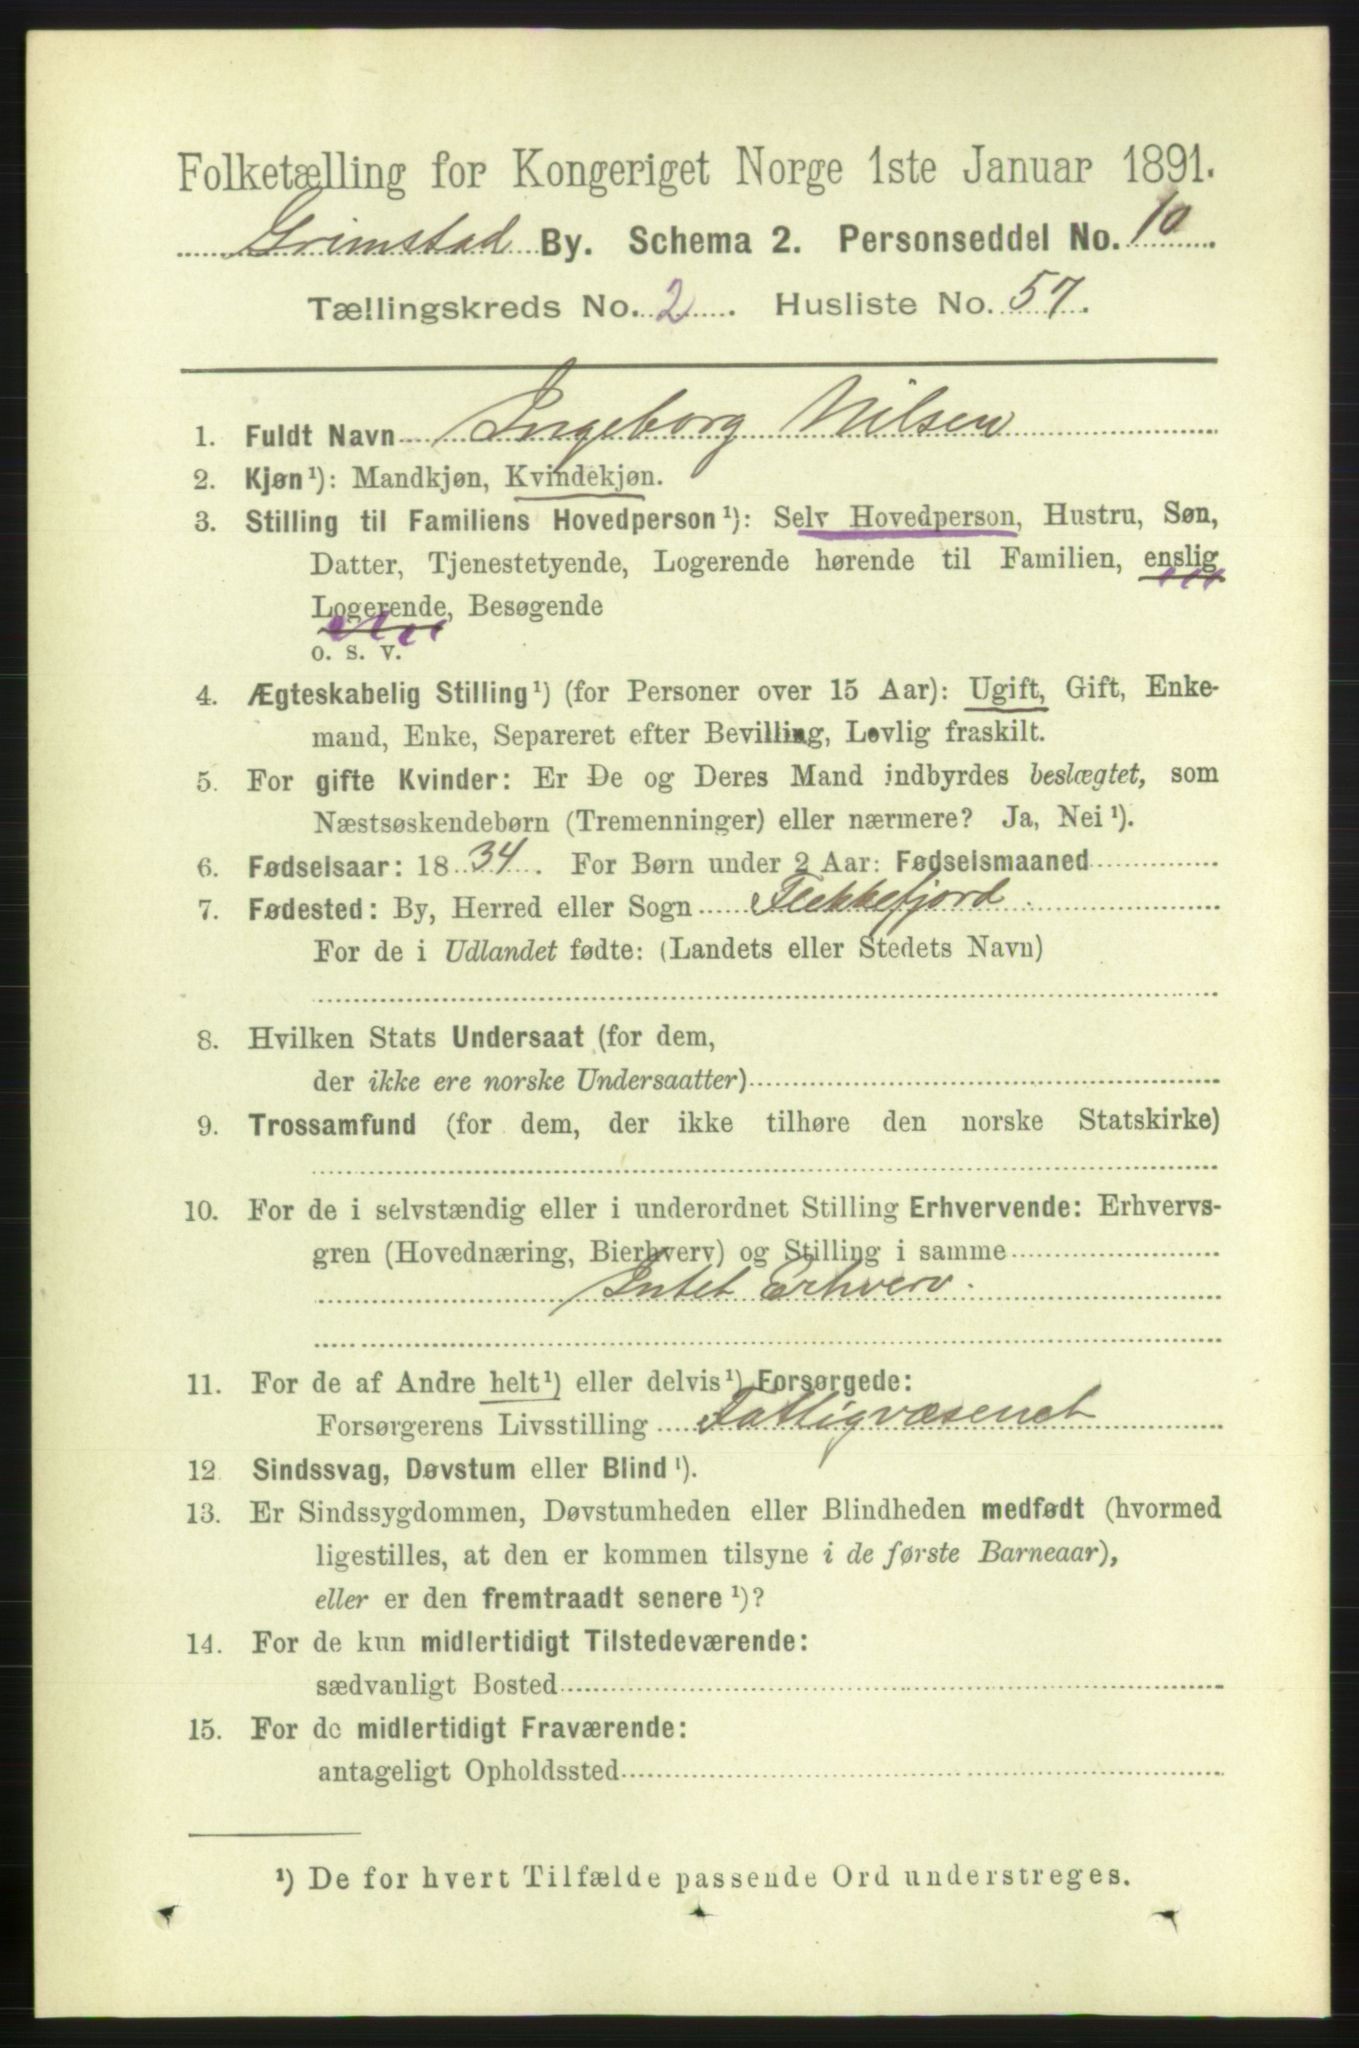 Folketælling for Kongeriget Norge 1ste Januar 1891.
Grimstad By. Schema 2. Personseddel No. 10.
Tællingskreds No. 2. Husliste No. 57.
1. Fuldt Navn Ingeborg Nilsen
2. Kjøn¹): Mandkjøn, Kvindekjøn.
3. Stilling til Familiens Hovedperson¹): Selv Hovedperson, Hustru, Søn,
Datter, Tjenestetyende, Logerende hørende til Familien, enslig
Logerende, Besøgende
o. s. v.
4. Ægteskabelig Stilling¹) (for Personer over 15 Aar): Ugift, Gift, Enke-
mand, Enke, Separeret efter Bevilling, Lovlig fraskilt.
5. For gifte Kvinder: Er De og Deres Mand indbyrdes beslægtet, som
Næstsøskendebørn (Tremenninger) eller nærmere? Ja, Nei¹).
6. Fødselsaar: 1834. For Børn under 2 Aar: Fødselsmaaned
7. Fødested: By, Herred eller Sogn Flekkefjord.
For de i Udlandet fødte: (Landets eller Stedets Navn)
8. Hvilken Stats Undersaat (for dem,
der ikke ere norske Undersaatter)
9. Trossamfund (for dem, der ikke tilhøre den norske Statskirke)
10. For de i selvstændig eller i underordnet Stilling Erhvervende: Erhvervs-
gren (Hovednæring, Bierhverv) og Stilling i samme
Intet Erhverv.
11. For de af Andre helt¹) eller delvis¹) Forsørgede:
Forsørgerens Livsstilling Fattigvæsenet
12 Sindssvag, Døvstum eller Blind¹).
13. Er Sindssygdommen, Døvstumheden eller Blindheden medfødt (hvormed
ligestilles, at den er kommen tilsyne i de første Barneaar),
eller er den fremtraadt senere¹)?
14. For de kun midlertidigt Tilstedeværende:
sædvanligt Bosted
15. For de midlertidigt Fraværende:
antageligt Opholdssted
¹) De for hvert Tilfælde passende Ord understreges.